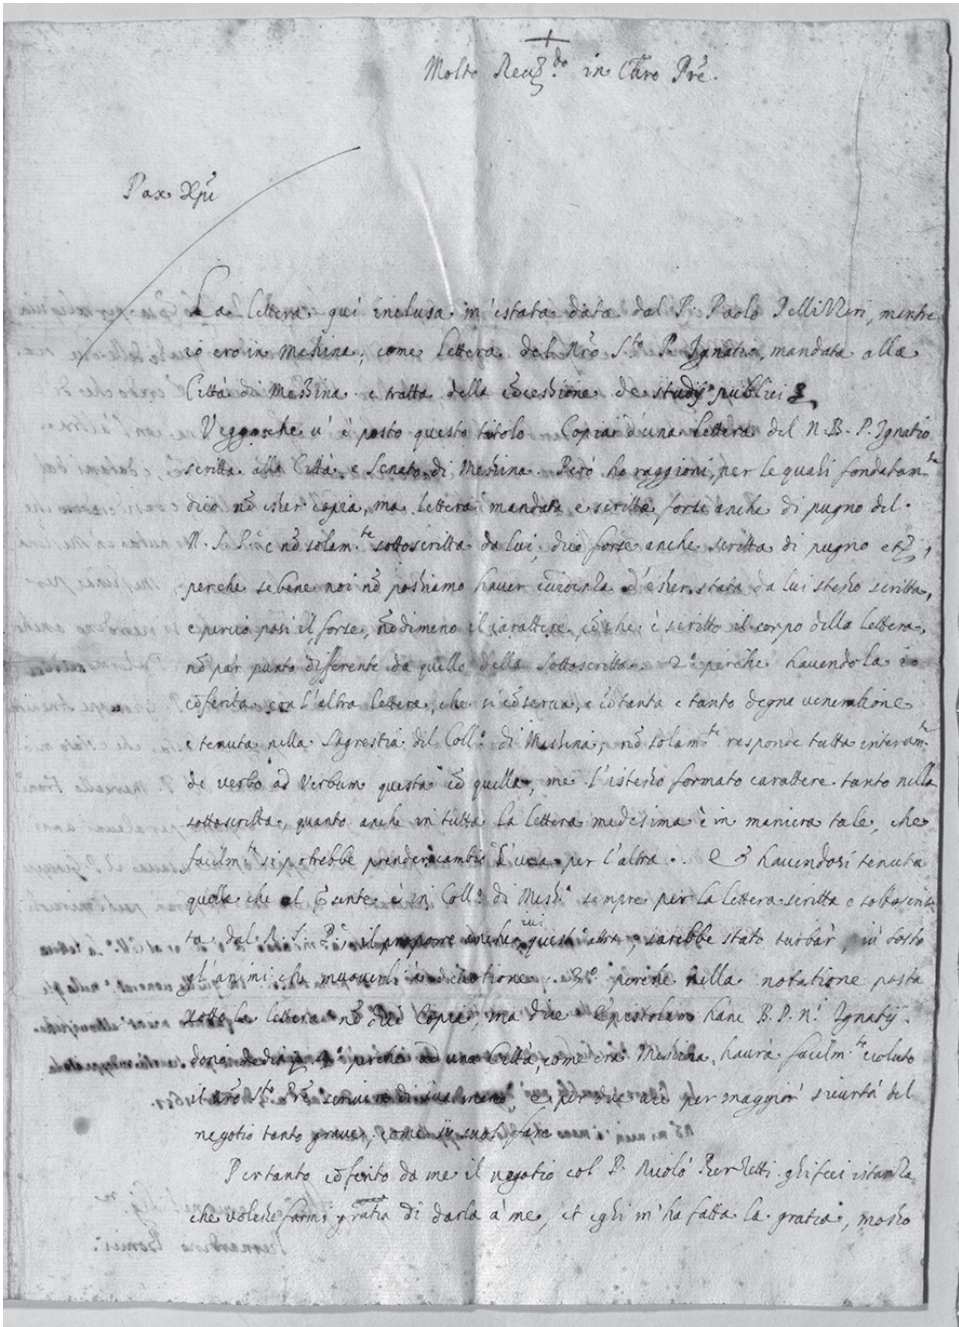 Molto Reu.do in Chro Prē.
Pax Xpi
La lettera qui inclusa m'è stata data dal P. Paolo Pellizzeri, mentre
io ero in Messina; come lettera del Nrō S.to P. Ignatio, mandata alla
Città di Messina e tratta della cōcessione de studij publici
Veggo che v'è posto questo titolo Copia d'una lettera del N. B. P. Ignatio
scritta alla Città e Senato di Messina. Però ho raggioni, per le quali fondatam.te
dico nō esser copia, ma lettera mandata e scritta forse anche di pugno del
N. S. P. e nō solam.te sottoscritta da lui, dico forse anche scritta di pugno
perche se bene noi nō possiamo hauer euidenza d'esser stata da lui stesso scritta,
e perciò posi il forse, nōdimeno il carattere, cō che è scritto il corpo della lettera,
nō par punto differente da quello della sottoscritta. 2.o perche hauendola io
cōferita con l'altra lettera, che si cōserua, e cō tanta e tanto degna veneratione
e tenuta nella Sagrestia del Coll.o di Messina, nō solam.te responde tutta interam.te
de verbo ad verbum questa cō quella, me l'istesso formato carattere tanto nella
sottoscritta, quanto anche in tutta la lettera medesima è in maniera tale, che
facilm.te si potrebbe prender in cambio l'una per l'altra. E hauendosi tenuta
quella che al è in Coll.o di Mess.a sempre per la lettera scritta e sottoscrit
ta dal N. S. P. il proporre anche quest'altra, sarebbe stato turbar
gl'animi, che muouerli à deuotione. 3.o perche nella notatione posta
sotto la lettera nō dice Copia, ma dice Epistolam hanc B. P. N.i Ignatij
4.o perche ad una Città, come era Messina, haurà facilm.te voluto
il nrō S.to Prē scriuere di sua mano, e per maggior sicurtà del
negotio tanto graue, come si suol fare
Pertanto cōferito da me il negotio col P. Nicolò gli feci istanza,
che volesse farmi gratia di darla à me, et egli m'ha fatta la gratia, mosso